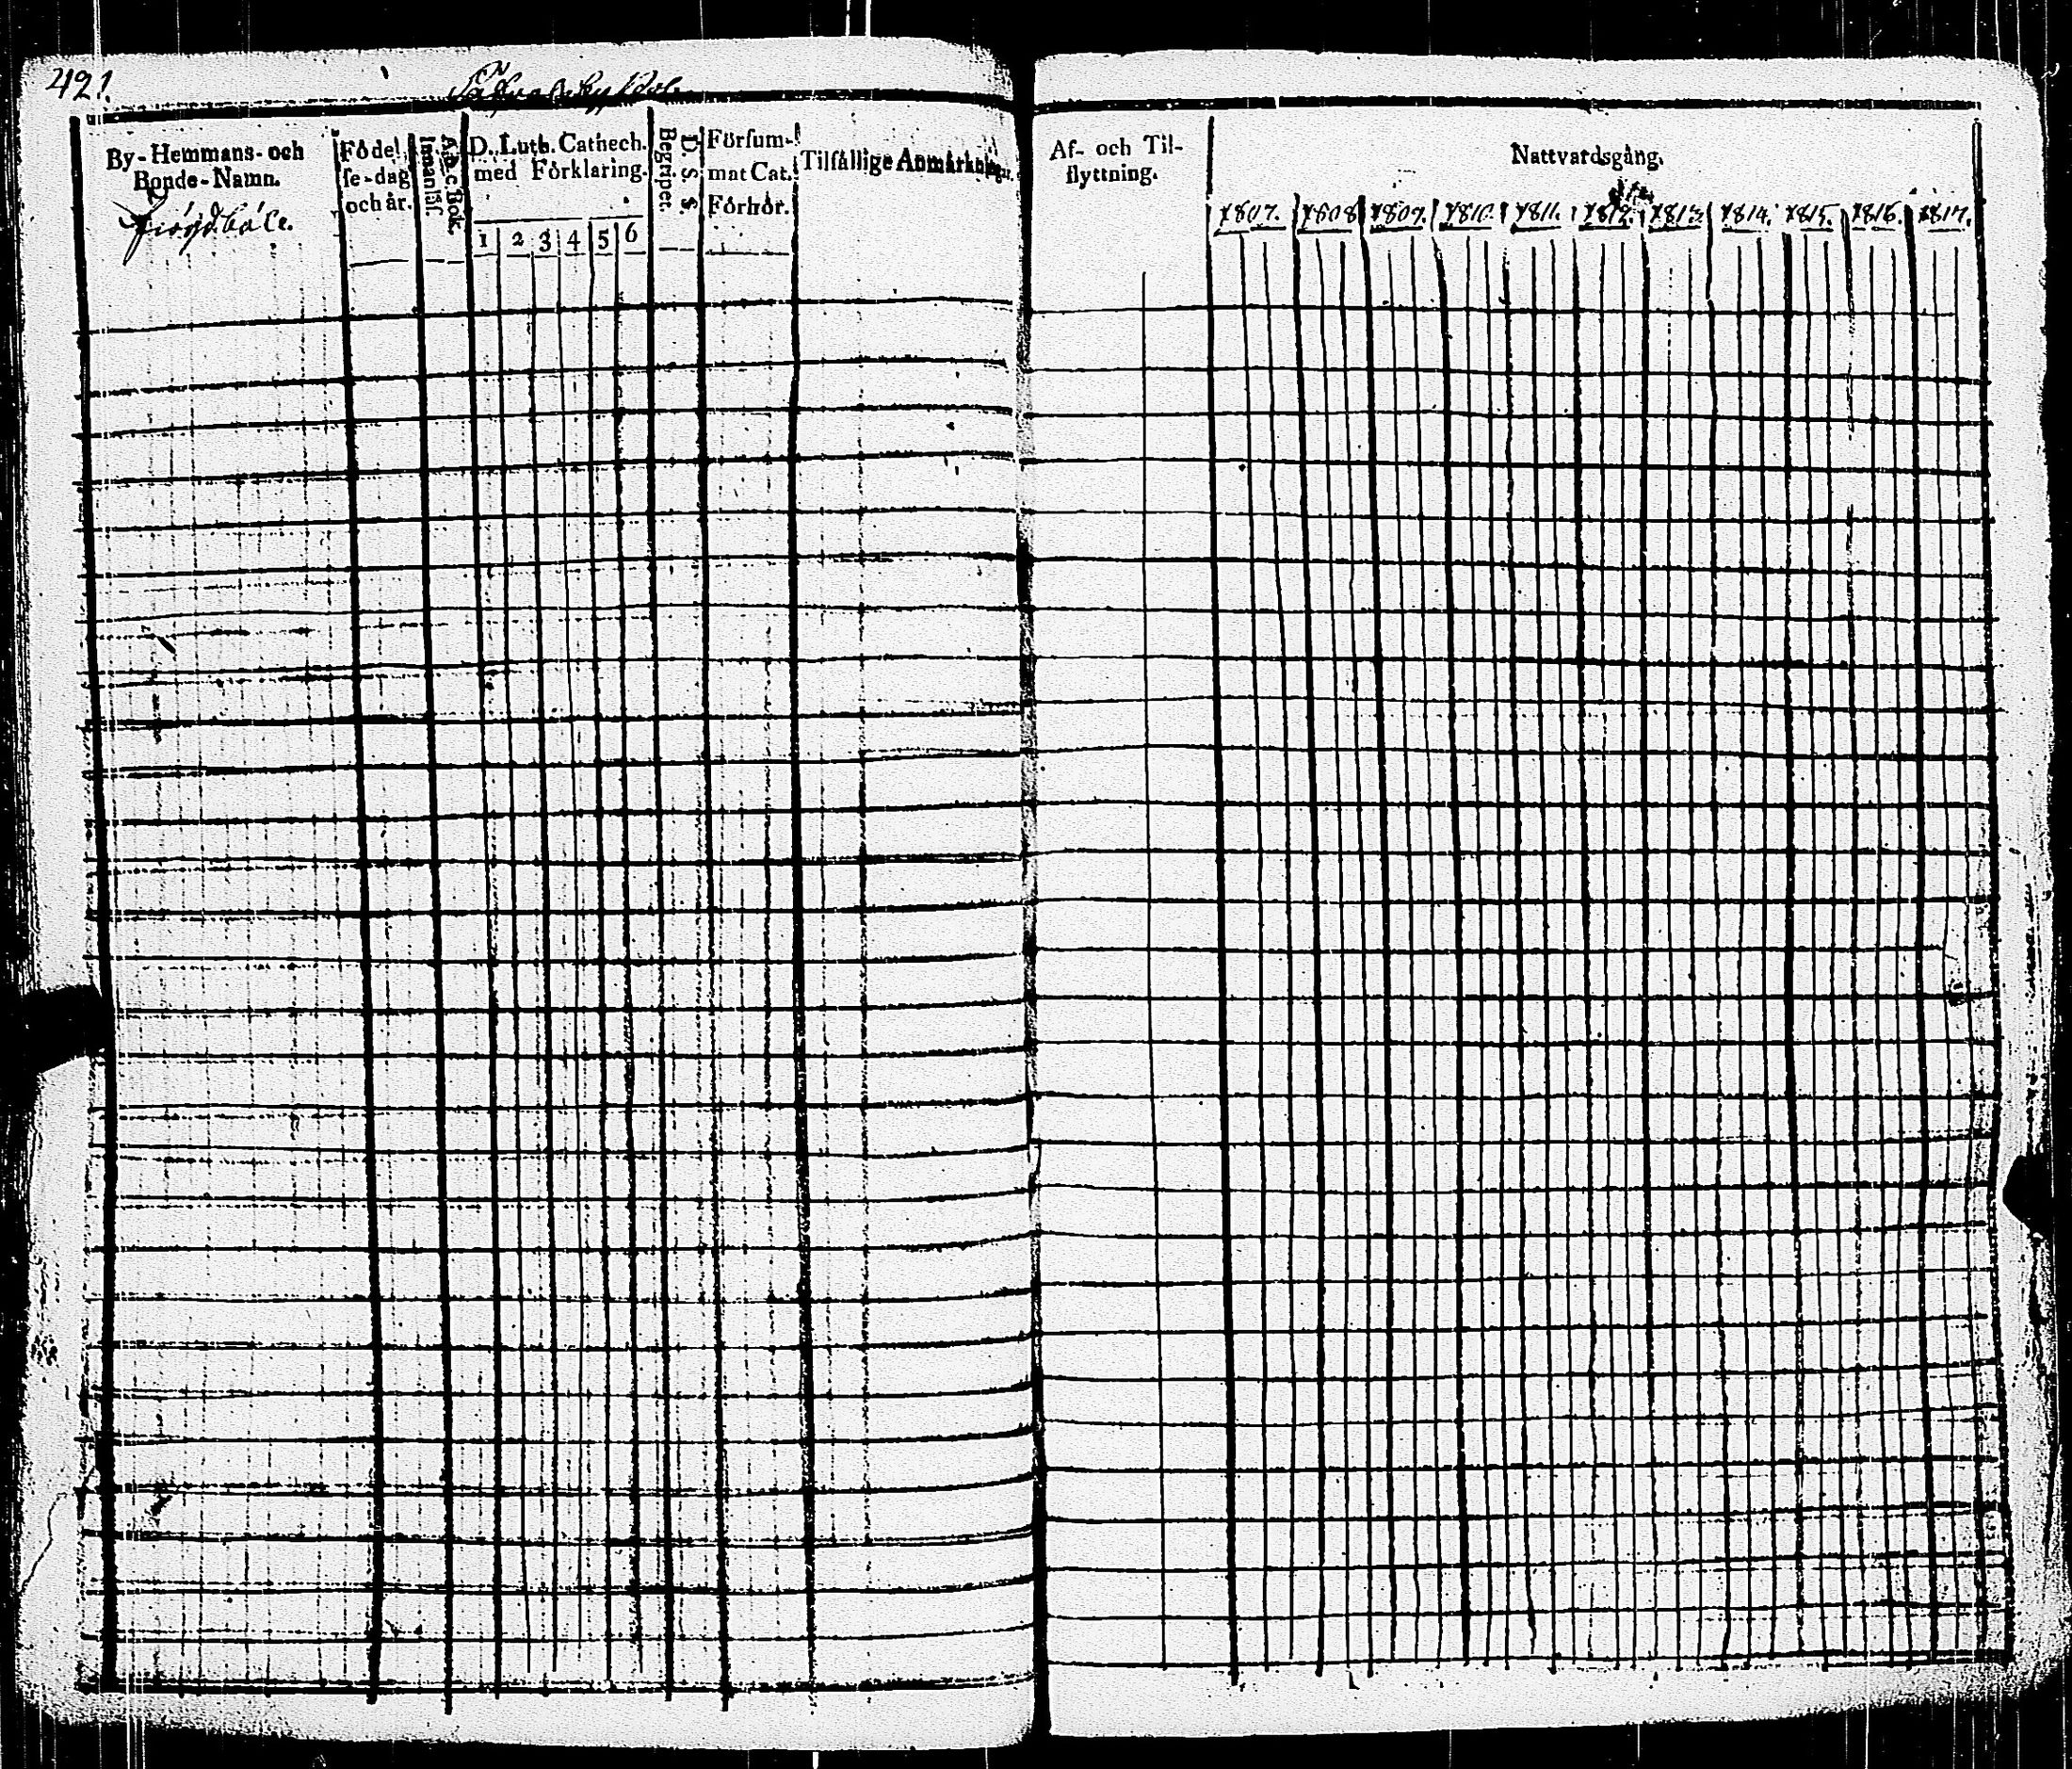 421.
By-Hemmans- och
Bonde-Namn.
Födel
se-dag
och år.
A b c Bok.
Innanläs.
D. Luth. Cathech.
med Förklaring.
1 2 3 4 5 6
D. S. S.
Begriper.
Försum-
mat Cat.
Förhör.
Tilfällige Anmärkningar.
Af- och Til-
flyttning.
Nattvardsgång.
1807. 1808 1809. 1810. 1811. 1812. 1813. 1814. 1815. 1816. 1817.